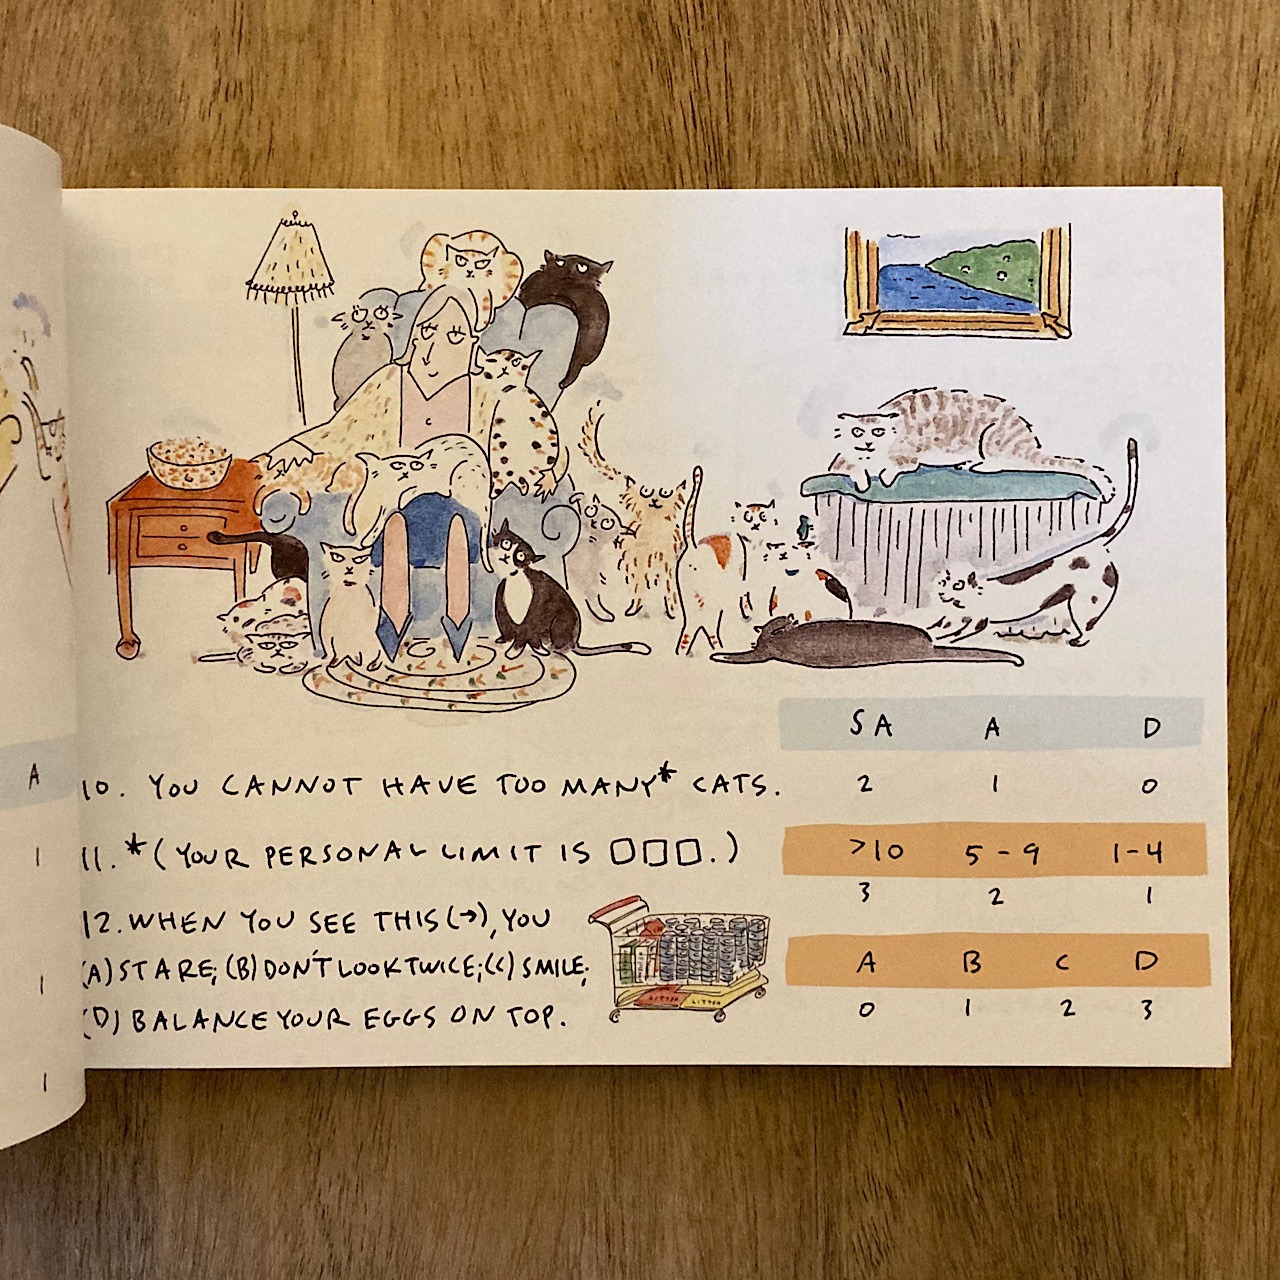 A
1
1
1
SA A D
10. YOU CANNOT HAVE TOO MANY* CATS. 2 1 0
11. *(YOUR PERSONAL LIMIT IS □□□.) >10 5-9 1-4
3 2 1
12. WHEN YOU SEE THIS (→), YOU
(A) STARE; (B) DON'T LOOK TWICE; (C) SMILE; A B C D
(D) BALANCE YOUR EGGS ON TOP. 0 1 2 3
LITTER LITTER